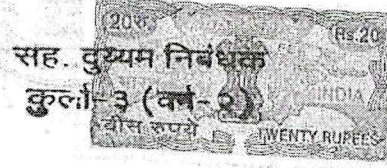 20रु. Rs.20
सह. दुय्यम निबंधक
कुर्ला-३ (वर्ग-२)
INDIA
बीस रुपये TWENTY RUPEES